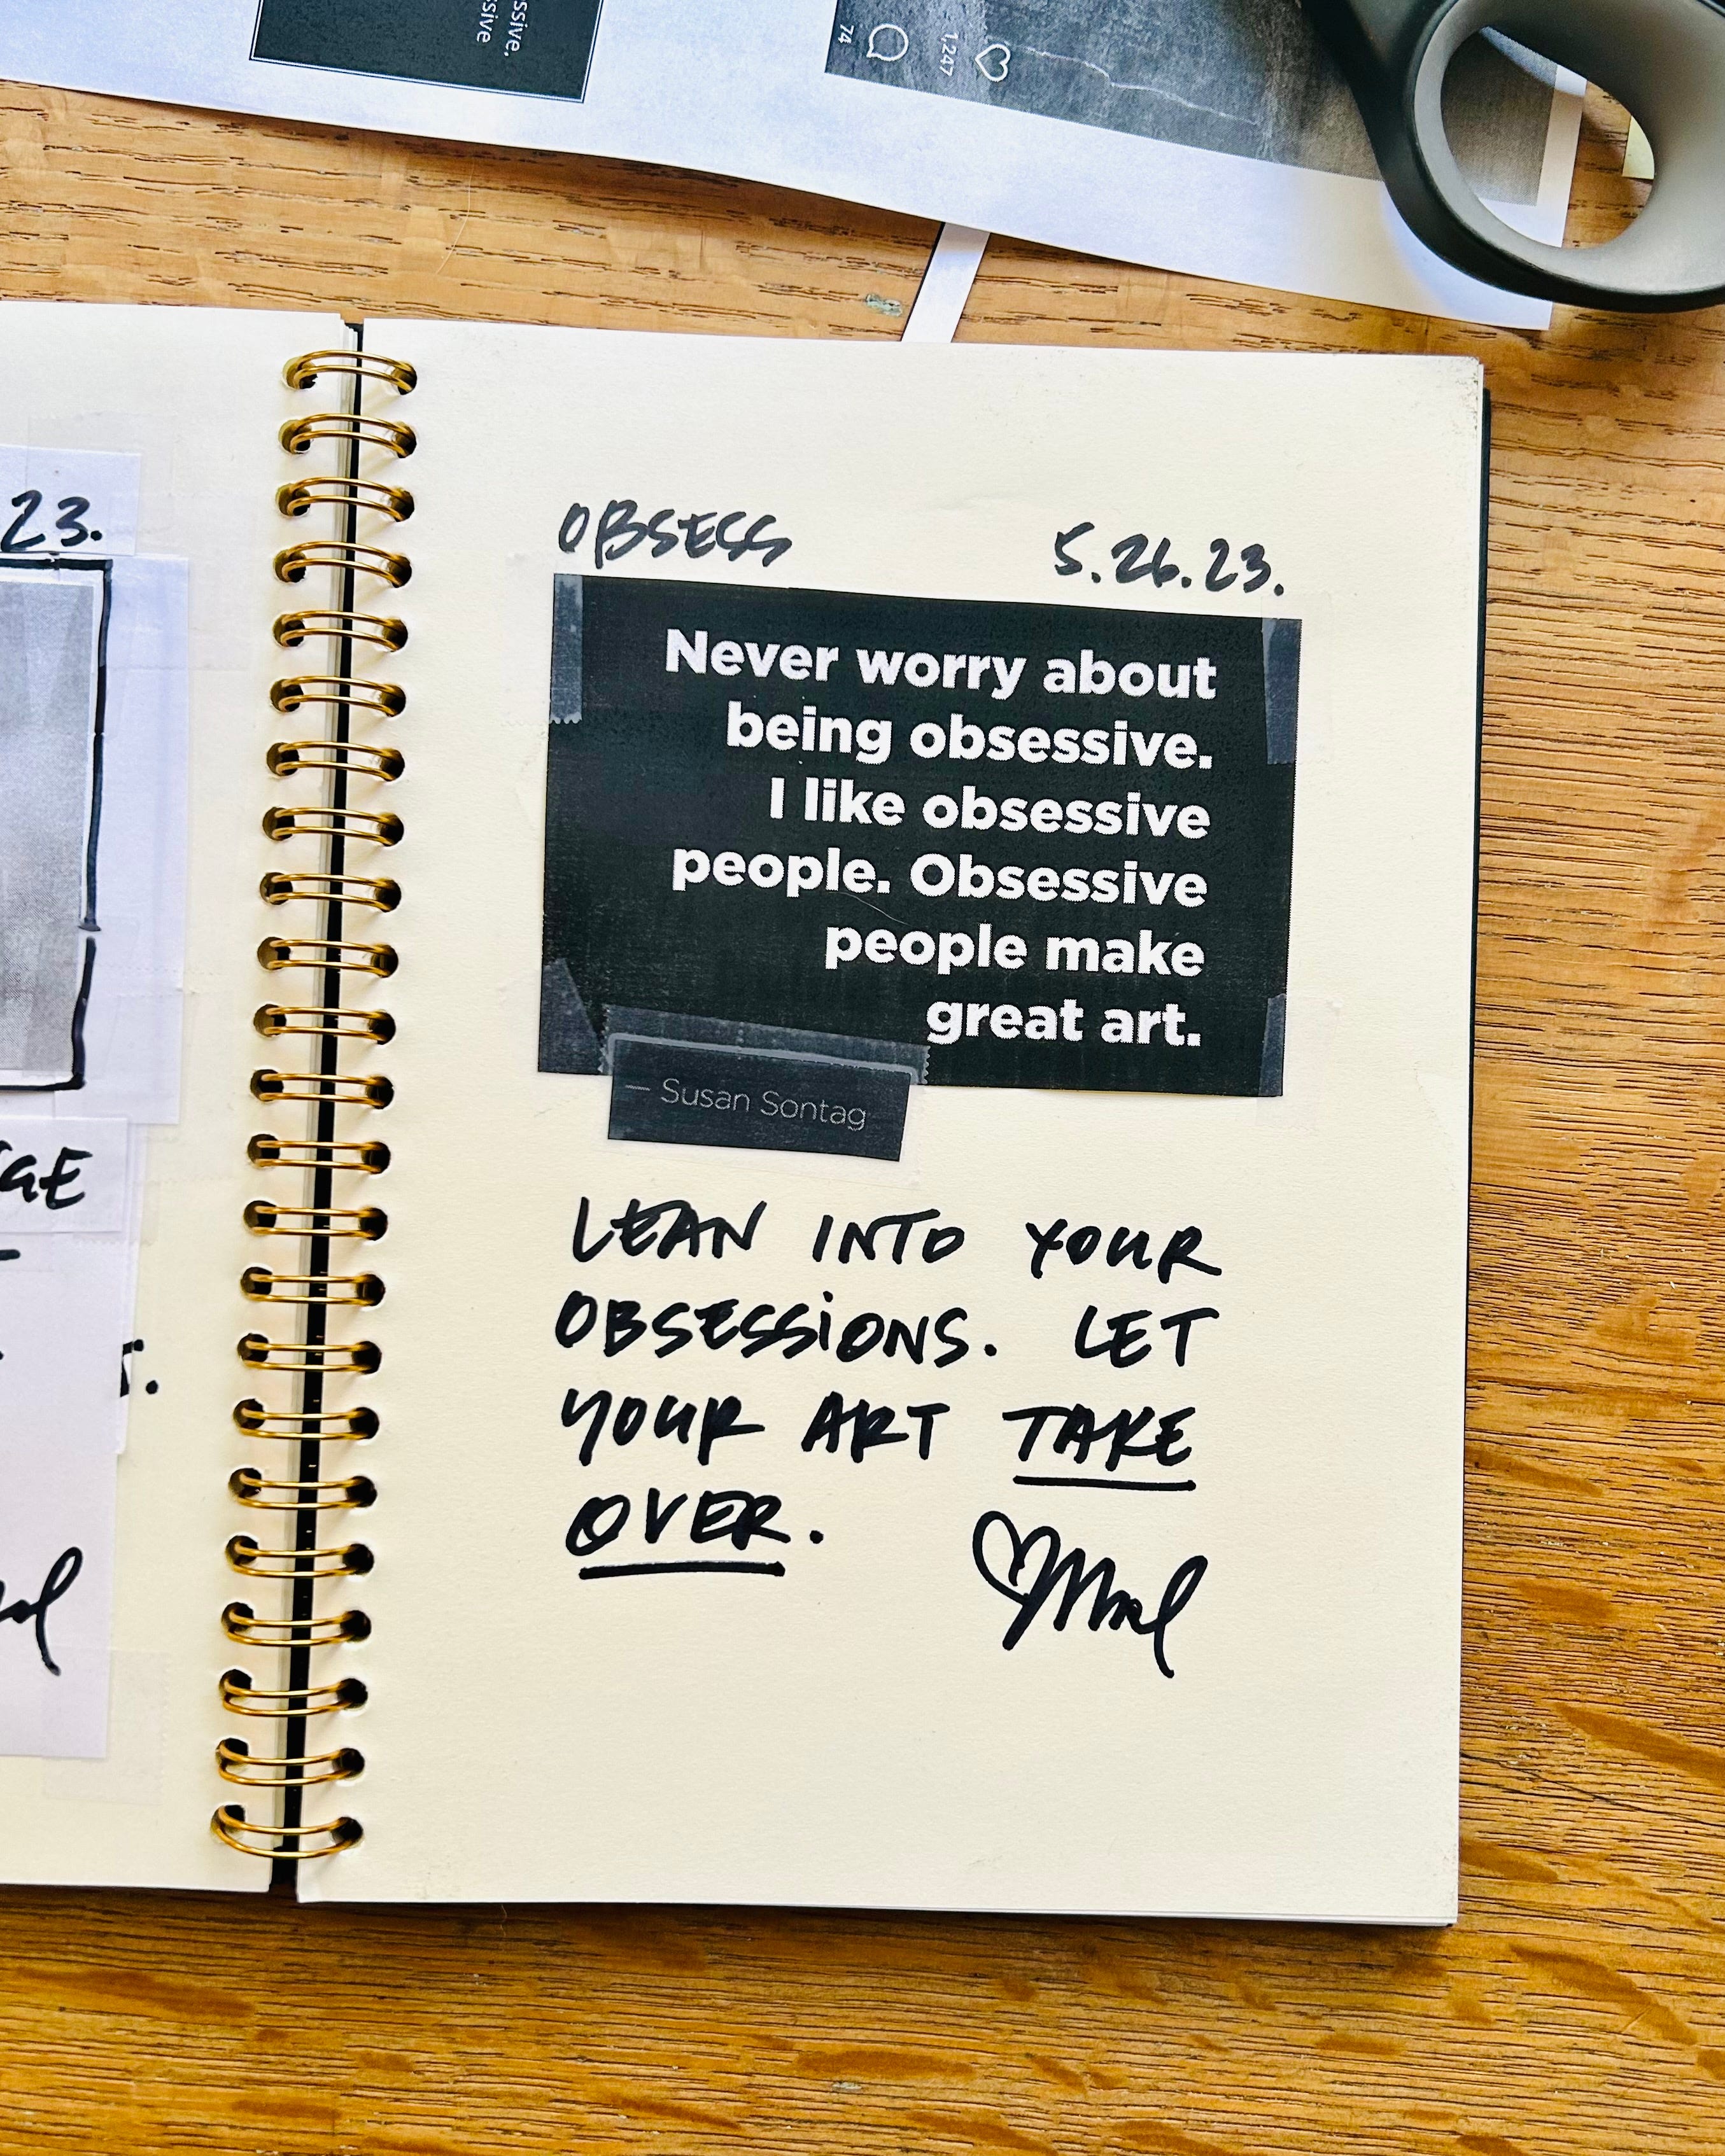 ssive.
ssive
1,247
74
23.
GE
OBSESS 5.26.23.
Never worry about
being obsessive.
I like obsessive
people. Obsessive
people make
great art.
— Susan Sontag
LEAN INTO YOUR
OBSESSIONS. LET
YOUR ART TAKE
OVER.